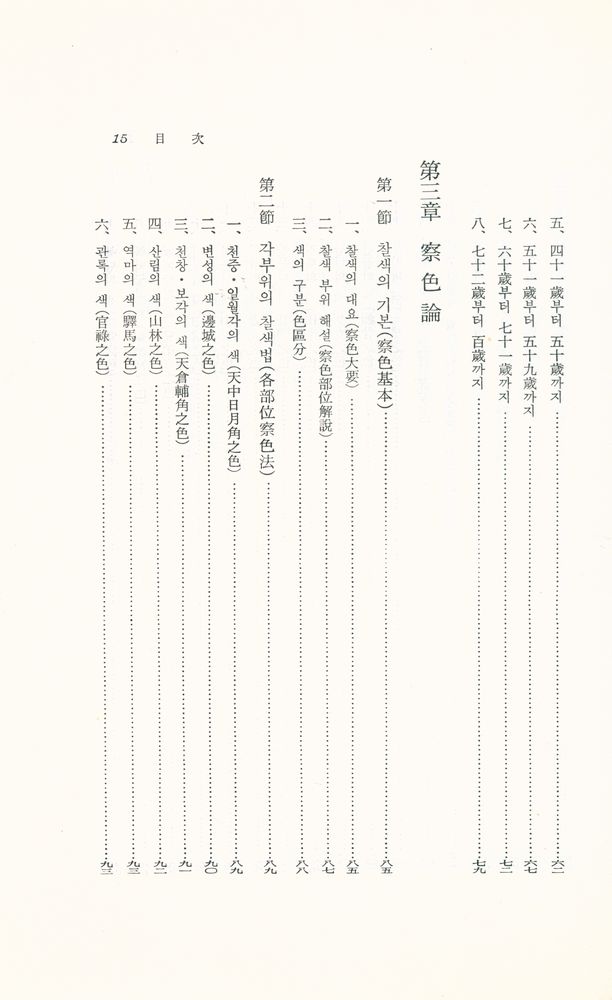 15 目 次
五、四十一歲부터 五十歲까지 六二
六、五十一歲부터 五十九歲까지 六七
七、六十歲부터 七十一歲까지 七二
八、七十二歲부터 百歲까지 七九
第三章 察色論
第一節 찰색의 기본(察色基本) 八五
一、찰색의 대요(察色大要) 八五
二、찰색 부위 해설(察色部位解說) 八七
三、색의 구분(色區分) 八八
第二節 각부위의 찰색법(各部位察色法) 八九
一、천중・일월각의 색(天中日月角之色) 八九
二、변성의 색(邊城之色) 九〇
三、천창・보각의 색(天倉輔角之色) 九一
四、산림의 색(山林之色) 九二
五、역마의 색(驛馬之色) 九三
六、관록의 색(官祿之色) 九三